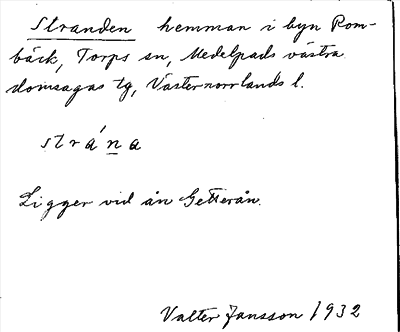 Stranden hemman i byn Rom-
bäck, Torps sn, Medelpads västra
domsagas tg, Västernorrlands l.
strána
Ligger vid ån Getterån.
Valter Jansson 1932